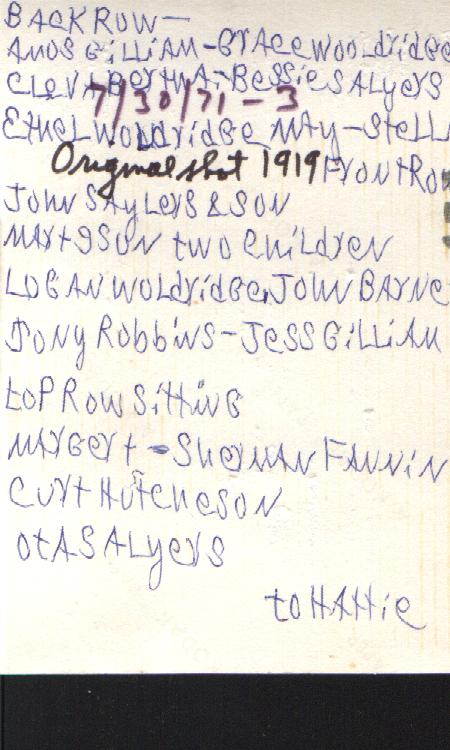 BACK ROW —
AMOS GILLIAM - GRACE WOOLdridGE
CLEVA BErTHA - BESSIE SALYERS
7/30/71 - 3
EtHEL WOLdridGE MAY - StELL
Original shot 1919 FrontRow
JOHN SAYLErS & SON
two CHiLdrEN
LOGAN WOLdridGE, JOHN BArNE
Robbins - JESS GiLLiAM
toP Row SittiNG
MArGErt - SHerMAN FANNiN
CUrt HUtCHESON
OtA SALyErS
to HAttiE